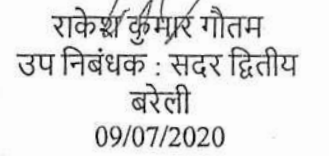 राकेश कुमार गौतम
उप निबंधक : सदर द्वितीय
बरेली
09/07/2020